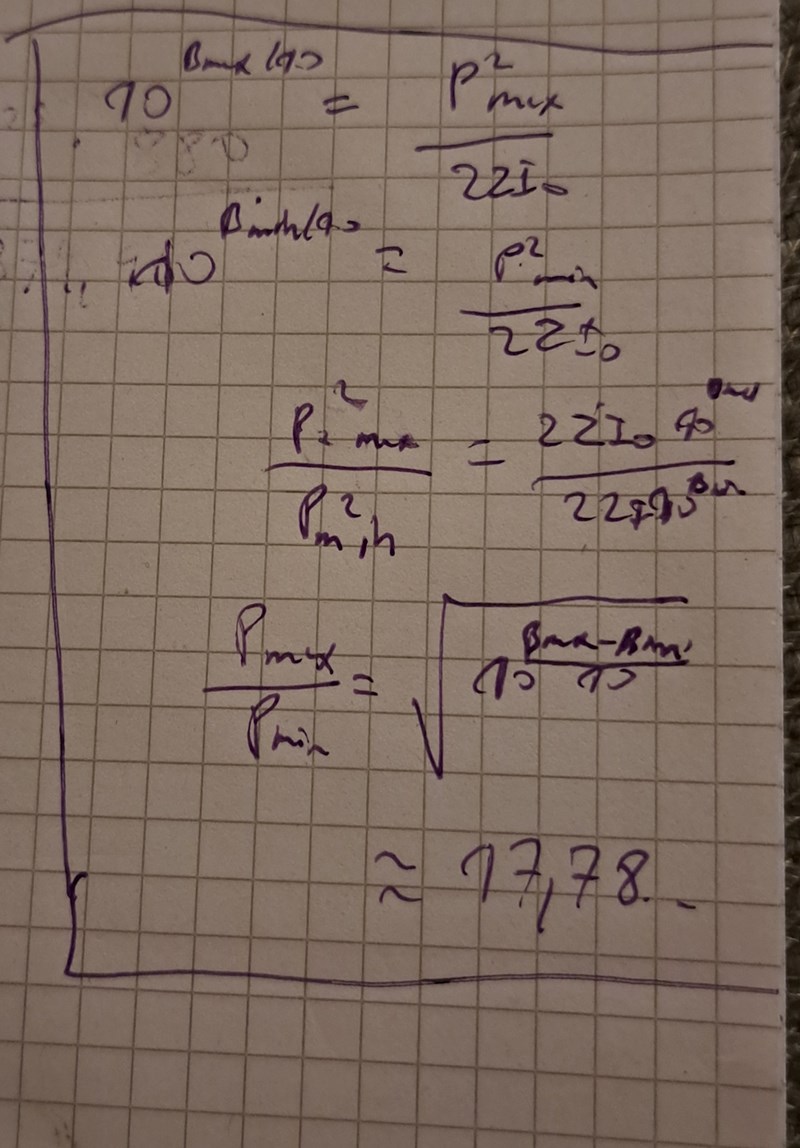 10^(Bmax/10) = P²max / 2ZI₀
10^(Bmin/10) = P²min / 2ZI₀
P²max / P²min = 2ZI₀ 10^Bmax / 2ZI₀ 10^Bmin
Pmax / Pmin = √(10^((Bmax-Bmin)/10))
≈ 17,78